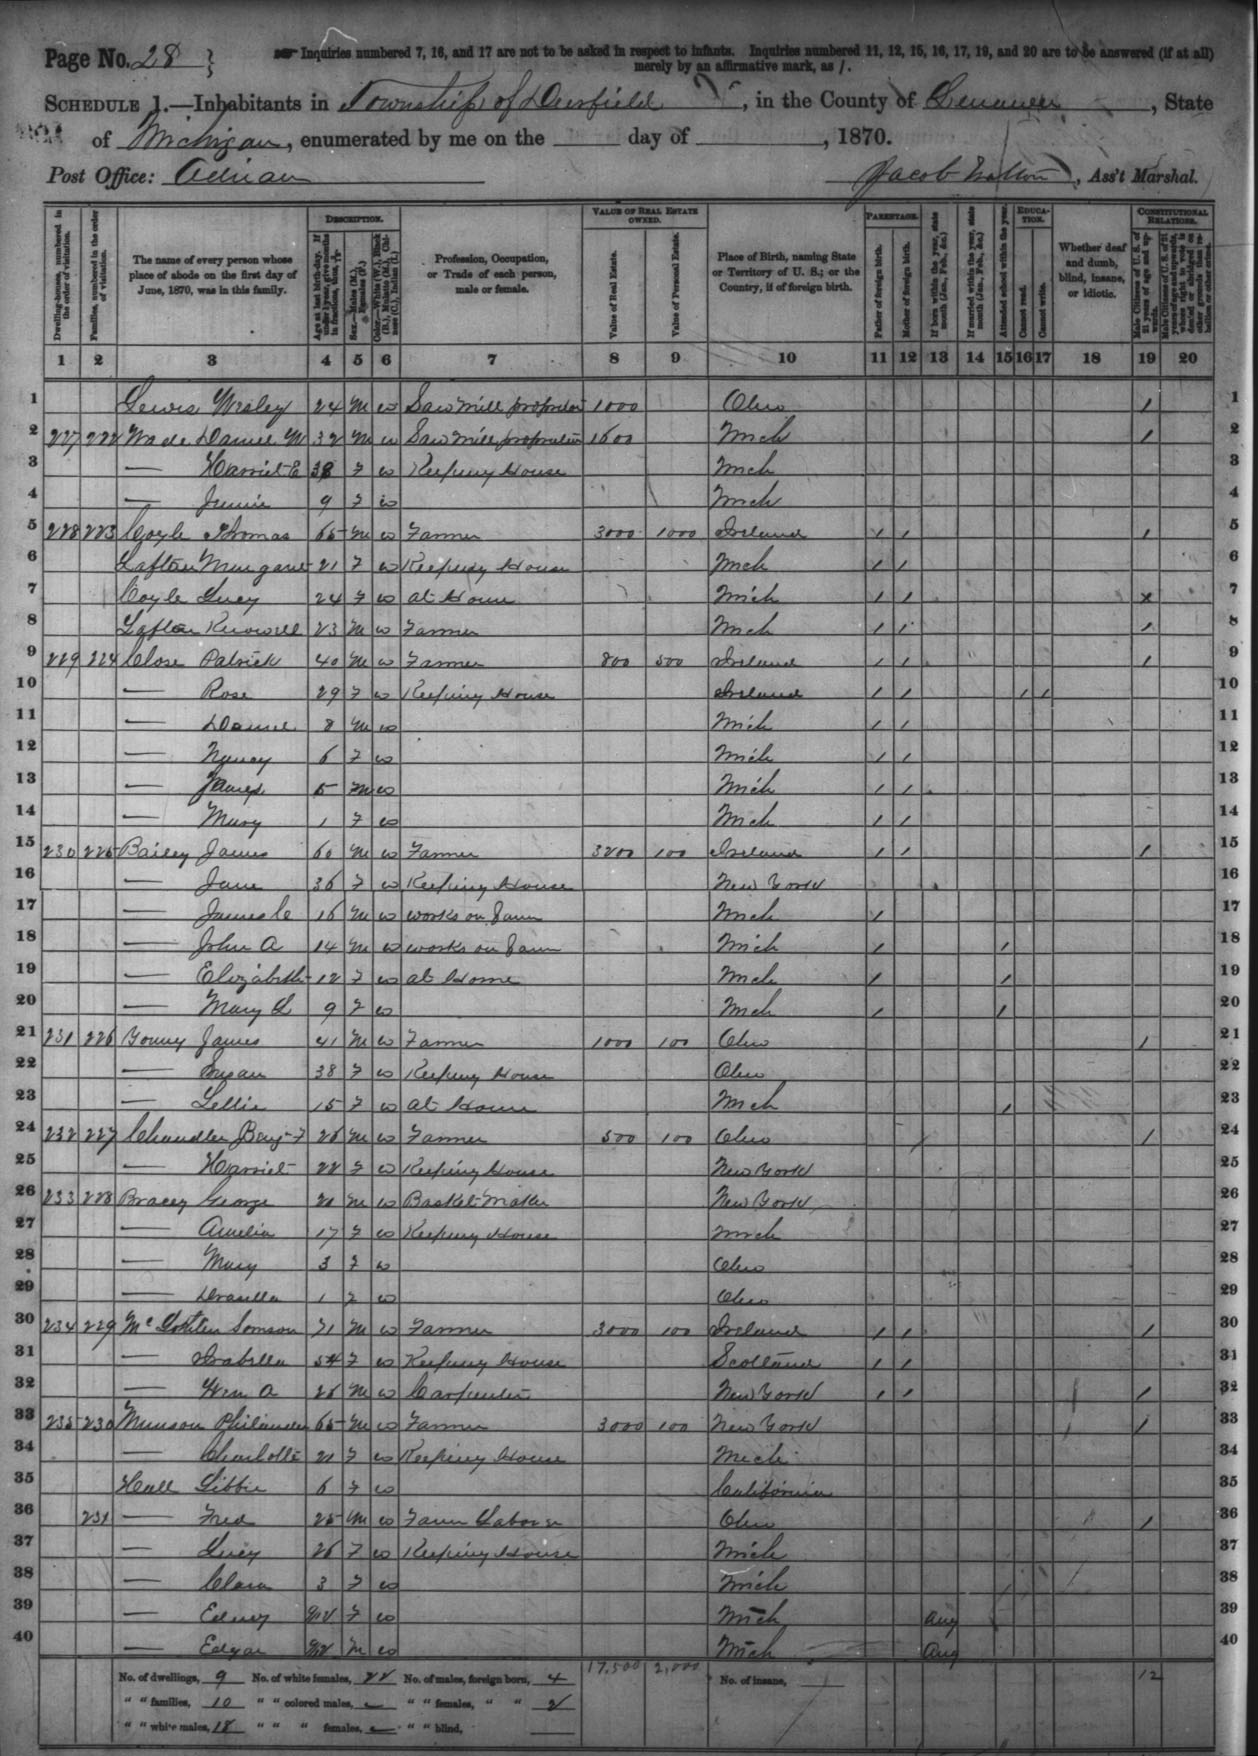 Page No. 28 Inquiries numbered 7, 16, and 17 are not to be asked in respect to infants. Inquiries numbered 11, 12, 15, 16, 17, 19, and 20 are to be answered (if at all)
merely by an affirmative mark, as /.
SCHEDULE 1.—Inhabitants in Township of Deerfield, in the County of Lenawee, State
of Michigan, enumerated by me on the day of , 1870.
Post Office: Adrian Jacob, Ass't Marshal.
DESCRIPTION. VALUE OF REAL ESTATE OWNED. PARENTAGE. EDUCATION. CONSTITUTIONAL RELATIONS.
Dwelling-houses, numbered in the order of visitation.
Families, numbered in the order of visitation.
The name of every person whose place of abode on the first day of June, 1870, was in this family.
Age at last birth-day.
Sex.—Males (M.), Females (F.)
Profession, Occupation, or Trade of each person, male or female.
Value of Real Estate.
Value of Personal Estate.
Place of Birth, naming State or Territory of U. S.; or the Country, if of foreign birth.
Father of foreign birth.
Mother of foreign birth.
If born within the year, state month (Jan., Feb., &c.)
If married within the year, state month (Jan., Feb., &c.)
Attended school within the year.
Cannot read.
Cannot write.
Whether deaf and dumb, blind, insane, or idiotic.
1 2 3 4 5 6 7 8 9 10 11 12 13 14 15 16 17 18 19 20
1 Lewis Wesley 24 M W Saw mill proprietor 1000 Ohio / 1
2 227 222 Wade Daniel M 32 M W Saw mill proprietor 1600 Mich / 2
3 — Harriet E 38 F W Keeping House Mich 3
4 — Jennie 9 F W Mich 4
5 228 223 Coyle Thomas 65 M W Farmer 3000 1000 Ireland / / / 5
6 Margaret 21 F W Keeping House Mich / / 6
7 Coyle Lucy 24 F W at Home Mich / / x 7
8 23 M W Farmer Mich / / / 8
9 229 224 Close Patrick 40 M W Farmer 800 500 Ireland / / / 9
10 — Rose 29 F W Keeping House Ireland / / / / 10
11 — Daniel 8 M W Mich / / 11
12 — Nancy 6 F W Mich / / 12
13 — James 5 M W Mich / / 13
14 — Mary 1 F W Mich / / 14
15 230 225 Bailey James 60 M W Farmer 3200 100 Ireland / / / 15
16 — Jane 36 F W Keeping House New York 16
17 — James C 16 M W works on farm Mich / 17
18 — John A 14 M W works on farm Mich / / 18
19 — Elizabeth 12 F W at Home Mich / / 19
20 — Mary L 9 F W Mich / / 20
21 231 226 Young James 41 M W Farmer 1000 100 Ohio / 21
22 — Susan 38 F W Keeping House Ohio 22
23 — Lellie 15 F W at Home Mich / 23
24 232 227 Chandler Benj F 26 M W Farmer 500 100 Ohio / 24
25 — Harriet 22 F W Keeping House New York 25
26 233 228 Bracey George 20 M W Basket Maker New York 26
27 — Amelia 17 F W Keeping House Mich 27
28 — Mary 3 F W Ohio 28
29 — Drasella 1 F W Ohio 29
30 234 229 71 M W Farmer 3000 100 Ireland / / / 30
31 — Isabella 54 F W Keeping House Scotland / / 31
32 — Wm A 26 M W Carpenter New York / / / 32
33 235 230 Munson Philander 65 M W Farmer 3000 100 New York / 33
34 — Charlotte 21 F W Keeping House Mich 34
35 Hall Libbie 6 F W California 35
36 231 — Fred 25 M W Farm Laborer Ohio / 36
37 — Lucy 26 F W Keeping House Mich 37
38 — Clara 3 F W Mich 38
39 — Edney 9/12 F W Mich Aug 39
40 — Edgar 9/12 M W Mich Aug 40
No. of dwellings, 9 No. of white females, 22 No. of males, foreign born, 4 17,500 2,000 No. of insane, 12
" " families, 10 " " colored males, " " females, " " 2
" " white males, 18 " " " females, " " blind,